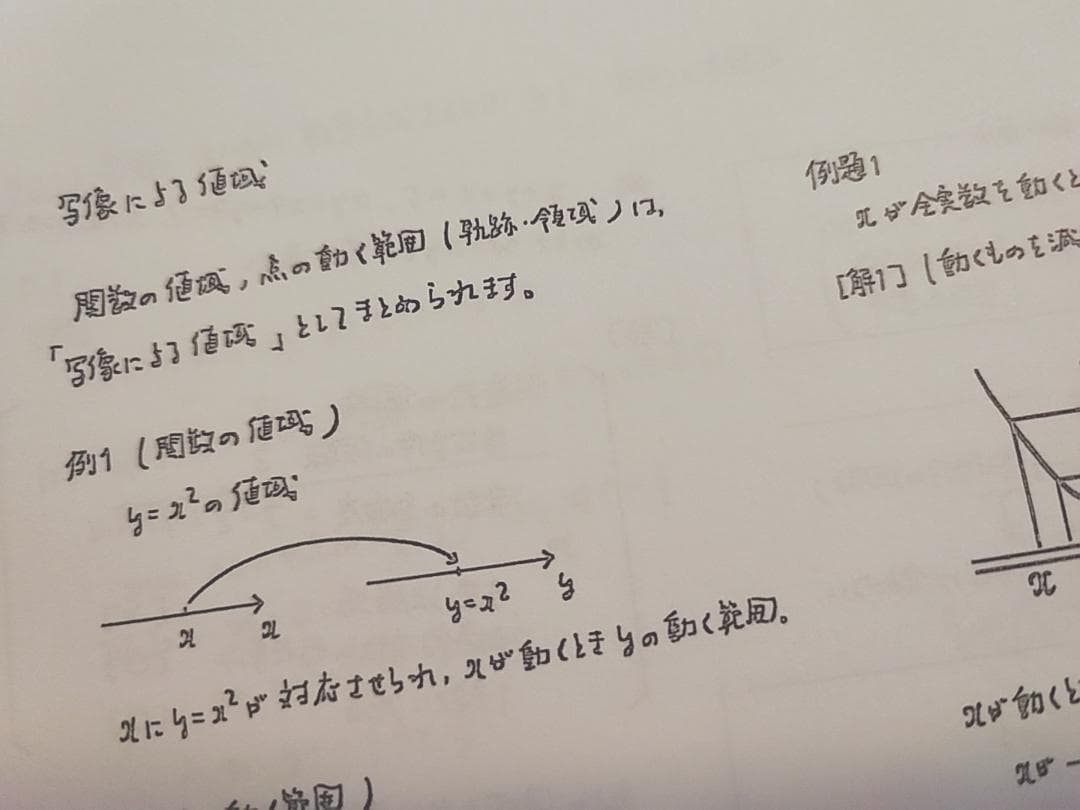 写像による値域
関数の値域,点の動く範囲(軌跡・領域)は,
「写像による値域」としてまとめられます。
例1(関数の値域)
y=x²の値域
x
x
y=x²
y
xにy=x²が対応させられ,xが動くときyの動く範囲。
動く範囲)
例題1
xが全実数を動くと
[解1](動くものを減
x
xが動くと
xが一